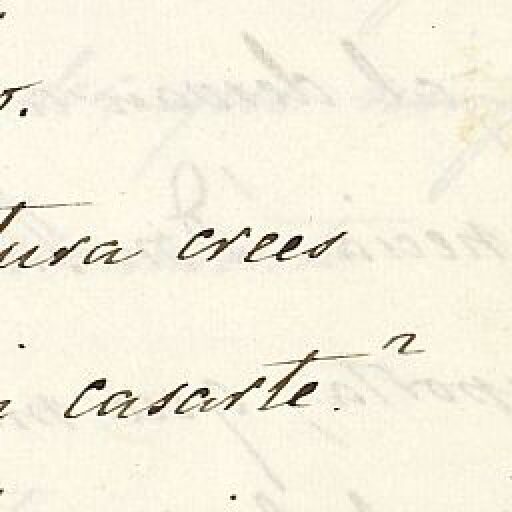 o.
tura crees
casarte?